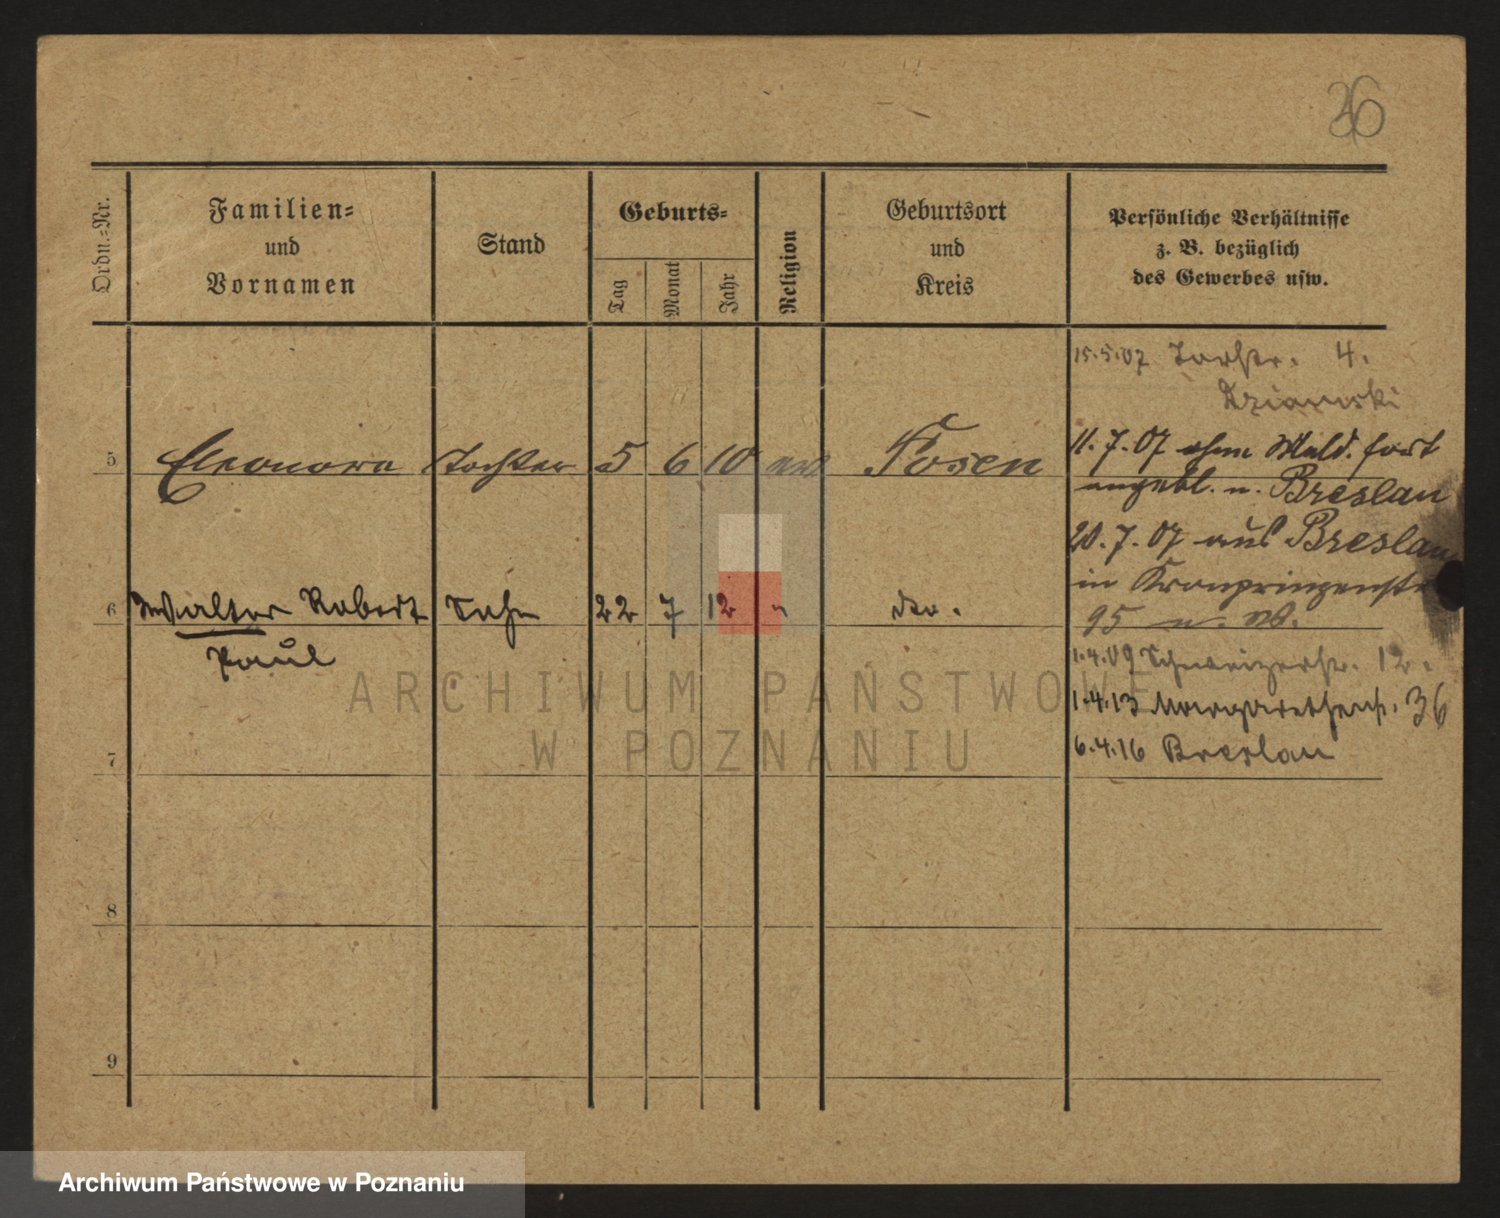 26
Ordn.-Nr.
Familien-
und
Vornamen
Stand
Geburts-
Tag
Monat
Jahr
Religion
Geburtsort
und
Kreis
Persönliche Verhältnisse
z. B. bezüglich
des Gewerbes usw.
15.5.07 Torstr. 4.
5 Eleonora Tochter 5 6 10 Posen
11.7.07 ohne Meld. fort
angebl. n. Breslau
20.7.07 aus Breslau
in Kronprinzenstr
95
6 Walter Robert Sohn 22 7 12 " do.
Paul
1.4.09 Schweizerstr. 12.
1.4.13 Margarethenstr. 36
6.4.16 Breslau
7
8
9
ARCHIWUM PAŃSTWOWE
W POZNANIU
Archiwum Państwowe w Poznaniu